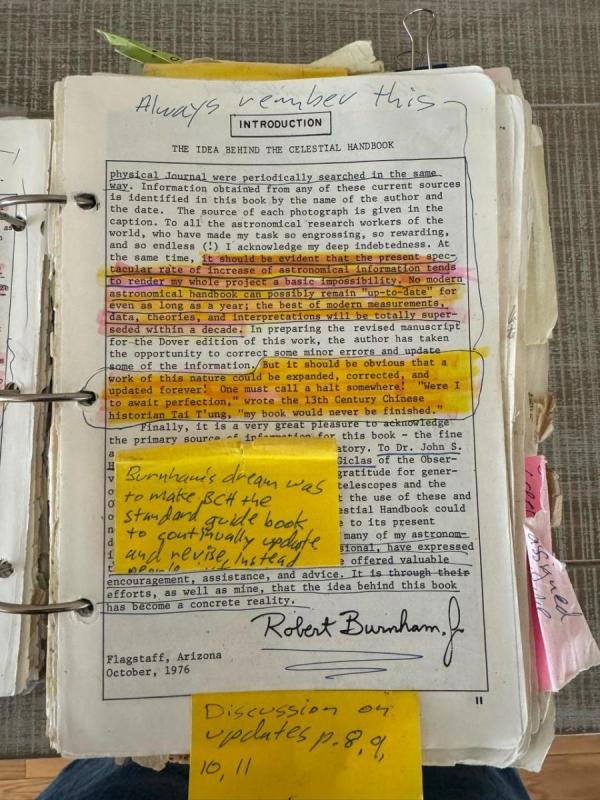 Always rember this
INTRODUCTION
THE IDEA BEHIND THE CELESTIAL HANDBOOK
physical Journal were periodically searched in the same
way. Information obtained from any of these current sources
is identified in this book by the name of the author and
the date. The source of each photograph is given in the
caption. To all the astronomical research workers of the
world, who have made my task so engrossing, so rewarding,
and so endless (!) I acknowledge my deep indebtedness. At
the same time, it should be evident that the present spec-
tacular rate of increase of astronomical information tends
to render my whole project a basic impossibility. No modern
astronomical handbook can possibly remain "up-to-date" for
even as long as a year; the best of modern measurements,
data, theories, and interpretations will be totally super-
seded within a decade. In preparing the revised manuscript
for the Dover edition of this work, the author has taken
the opportunity to correct some minor errors and update
some of the information. But it should be obvious that a
work of this nature could be expanded, corrected, and
updated forever! One must call a halt somewhere! "Were I
to await perfection," wrote the 13th Century Chinese
historian Tai T'ung, "my book would never be finished."
Finally, it is a very great pleasure to acknowledge
the primary source of information for this book - the fine
atory. To Dr. John S.
Giclas of the Obser-
gratitude for gener-
telescopes and the
t the use of these and
lestial Handbook could
e to its present
many of my astronom-
sional, have expressed
e offered valuable
encouragement, assistance, and advice. It is through their
efforts, as well as mine, that the idea behind this book
has become a concrete reality.
Burnham's dream was
to make BCH the
standard guide book
to continually update
and revise, instead
people
Robert Burnham, Jr
Flagstaff, Arizona
October, 1976
11
Discussion on
updates p. 8, 9,
10, 11
assigned